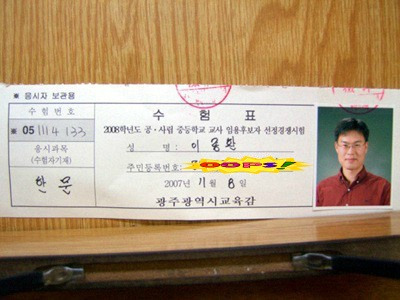 ■ 응시자 보관용
수 험 번 호
05 1114133
응시과목
(수험자기재)
한 문
수 험 표
2008학년도 공·사립 중등학교 교사 임용후보자 선정경쟁시험
성 명:
주민등록번호:
OOPS!
2007년 11월 8일
광주광역시교육감